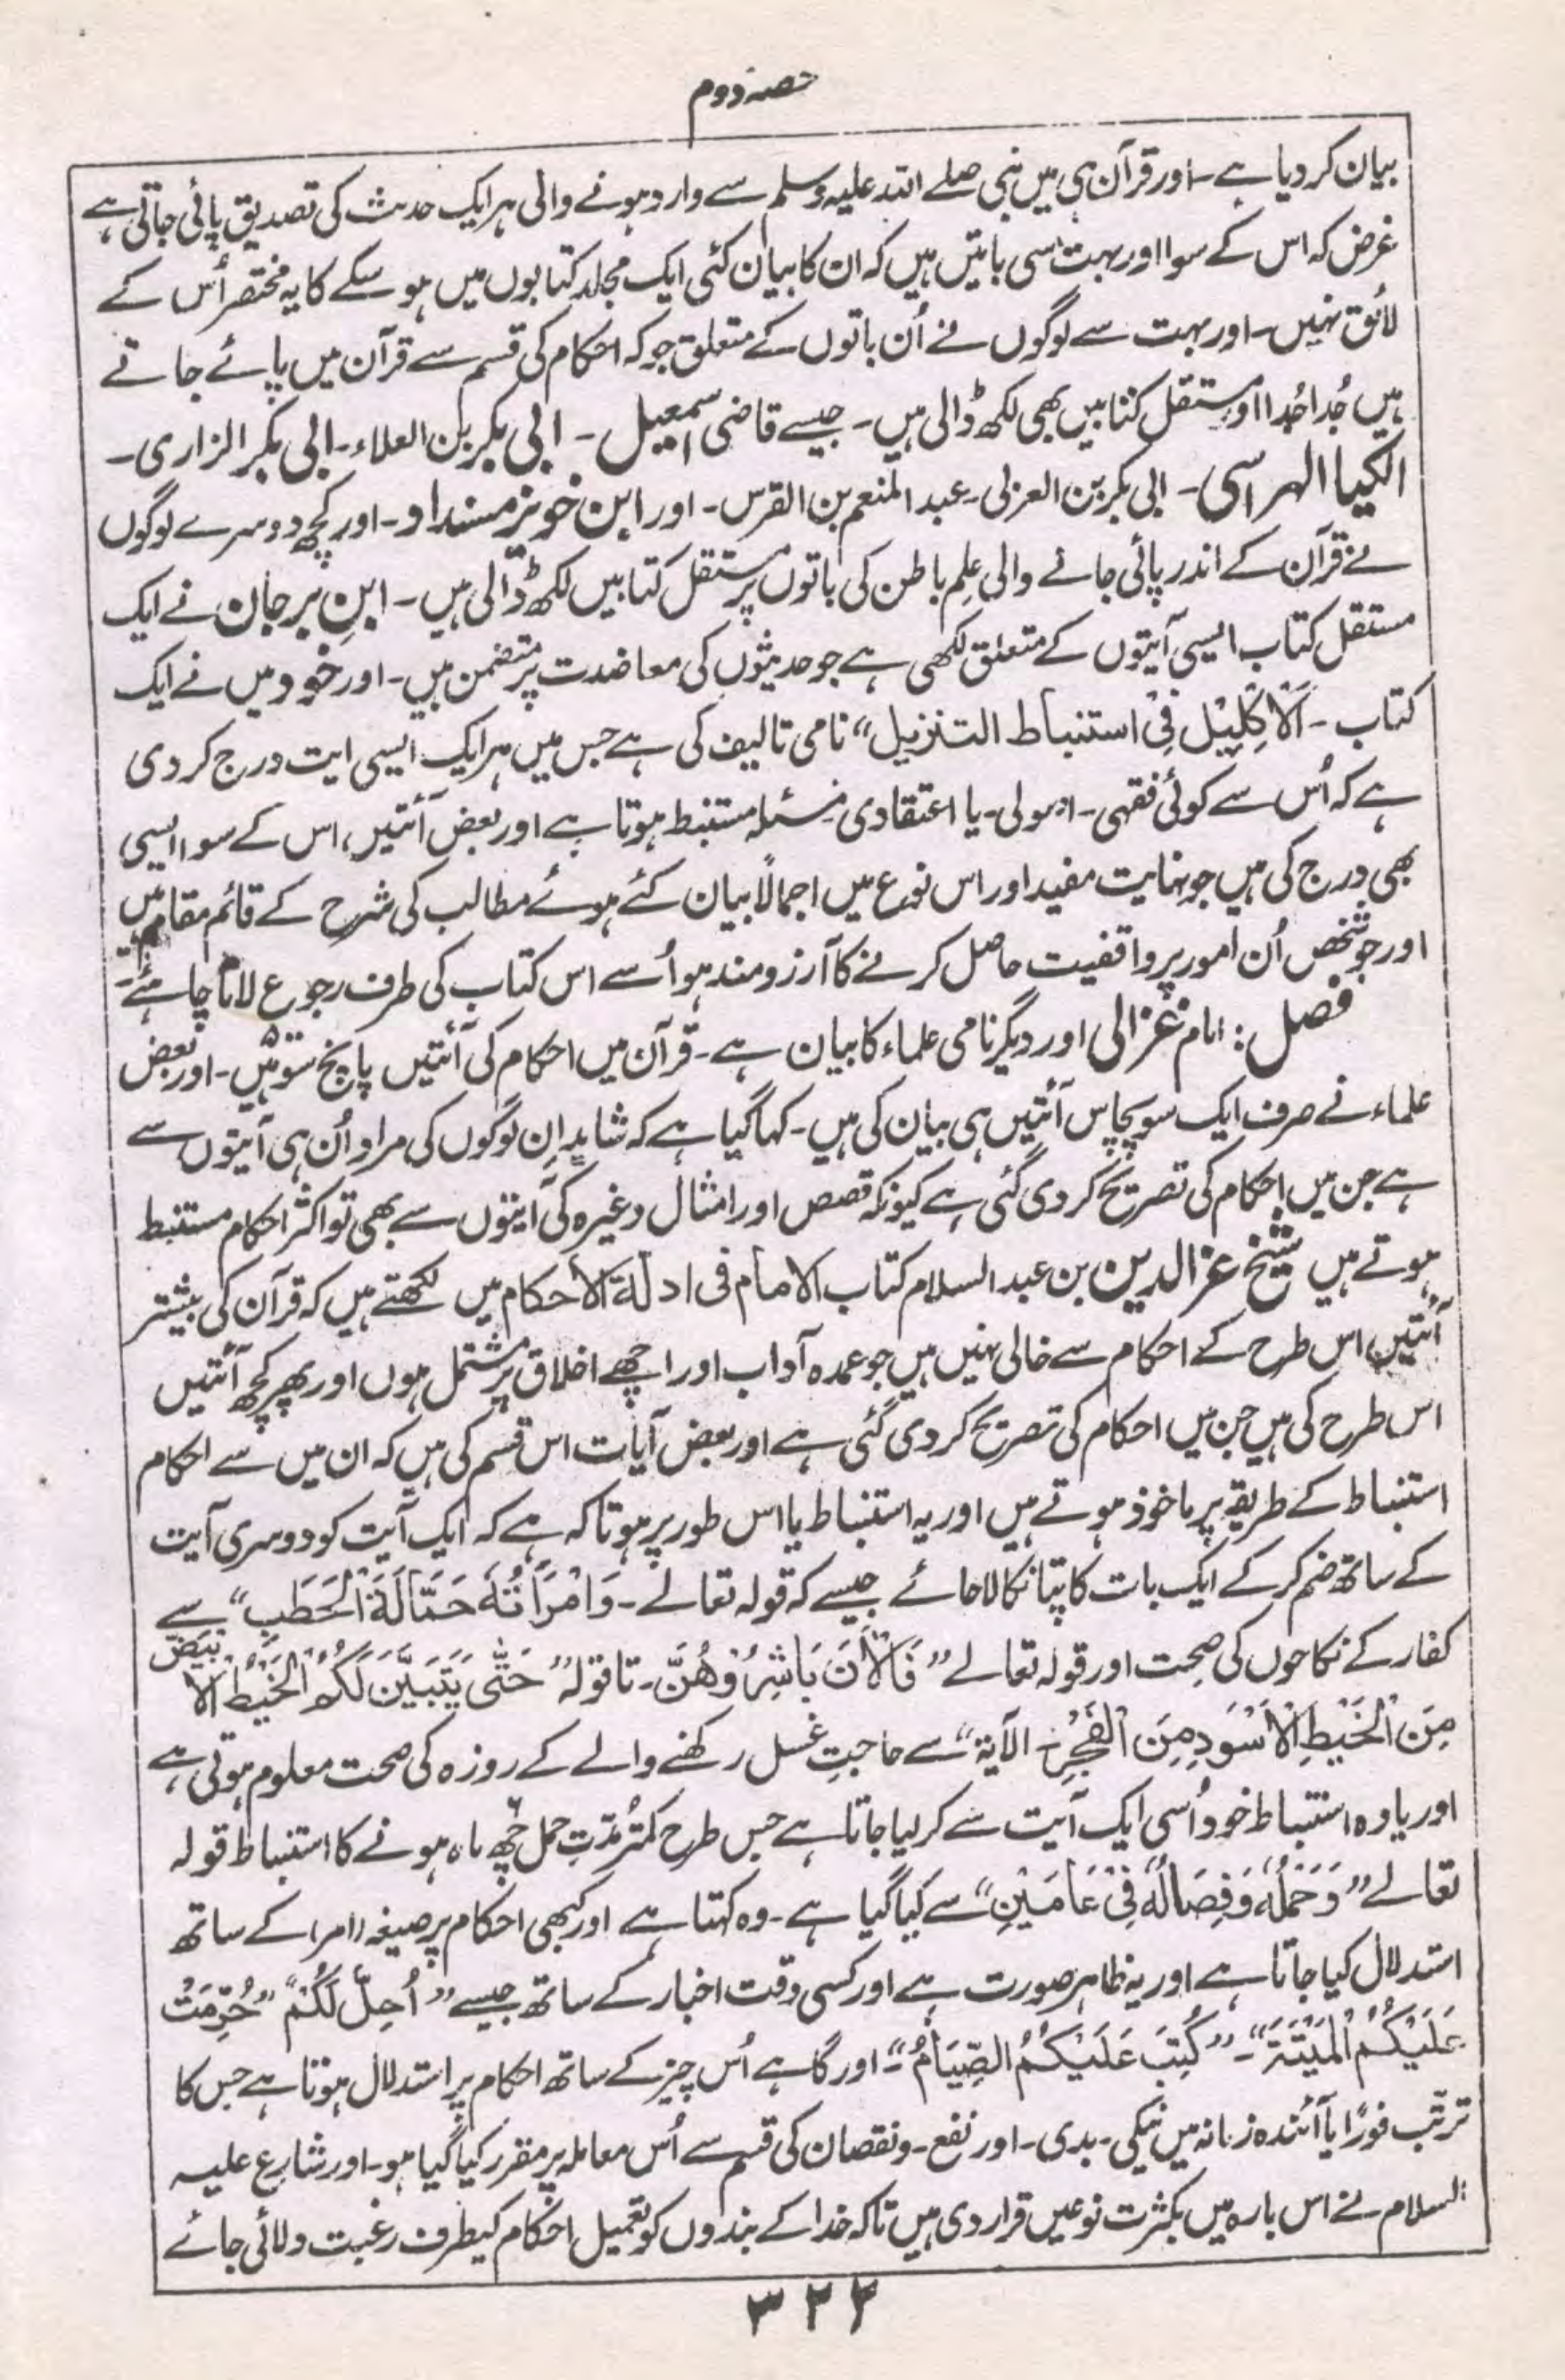 حصہ دوم
بیان کر دیا ہے۔ اور قرآن ہی میں نبی صلے اللہ علیہ وسلم سے وارد ہونے والی ہر ایک حدیث کی تصدیق پائی جاتی ہے
غرض کہ اس کے سوا اور بہت سی باتیں ہیں کہ ان کا بیان کئی ایک مجلد کتابوں میں ہو سکے گا یہ مختصر اُس کے
لائق نہیں۔ اور بہت سے لوگوں نے اُن باتوں کے متعلق جو کہ احکام کی قسم سے قرآن میں پائے جاتے
ہیں جُدا جُدا اور مستقل کتابیں بھی لکھ ڈالی ہیں۔ جیسے قاضی اسمٰعیل۔ ابی بکر بن العلاء۔ ابی بکر الرازی۔
الکیا الہراسی۔ ابی بکر بن العربی۔ عبد المنعم بن القرس۔ اور ابن خویز مسنداد۔ اور کچھ دوسرے لوگوں
نے قرآن کے اندر پائی جانے والی علِم باطن کی باتوں پر مستقل کتابیں لکھ ڈالی ہیں۔ ابنِ برجان نے ایک
مستقل کتاب ایسی آیتوں کے متعلق لکھی ہے جو حدیثوں کی معاضدت پر متضمن ہیں۔ اور خود میں نے ایک
کتاب۔ اَلْاِکْلِیْل فِیْ استنباط التنزیل“ نامی تالیف کی ہے جس میں ہر ایک ایسی ایت درج کر دی
ہے کہ اُس سے کوئی فقہی۔ اصولی۔ یا اعتقادی مسئلہ مستنبط ہوتا ہے اور بعض آئتیں، اس کے سوا ایسی
بھی درج کی ہیں جو نہایت مفید اور اس نوع میں اجمالًا بیان کئے ہوئے مطالب کی شرح کے قائم مقام ہیں
اور جو شخص اُن امور پر واقفیت حاصل کرنے کا آرزومند ہو اُسے اس کتاب کی طرف رجوع لانا چاہئے۔
فصل: امام غزالی اور دیگر نامی علماء کا بیان ہے۔ قرآن میں احکام کی آئتیں پانچ سو ہیں۔ اور بعض
علماء نے صرف ایک سو پچاس آئتیں ہی بیان کی ہیں۔ کہا گیا ہے کہ شاید اِن لوگوں کی مراد اُن ہی آیتوں سے
ہے جن میں احکام کی تصریح کر دی گئی ہے کیونکہ قصص اور امثال وغیرہ کی آیتوں سے بھی تو اکثر احکام مستنبط
ہوتے ہیں شیخ عز الدین بن عبد السلام کتاب الامام فی ادلۃ الاحکام میں لکھتے ہیں کہ قرآن کی بیشتر
آئتیں اس طرح کے احکام سے خالی نہیں ہیں جو عمدہ آداب اور اچھے اخلاق پر مشتمل ہوں اور پھر کچھ آئتیں
اس طرح کی ہیں جن میں احکام کی تصریح کر دی گئی ہے اور بعض آیات اس قسم کی ہیں کہ ان میں سے احکام
استنباط کے طریقہ پر ماخوذ ہوتے ہیں اور یہ استنباط یا اس طور پر ہوتا کہ ہے کہ ایک آیت کو دوسری آیت
کے ساتھ ضم کر کے ایک بات کا پتا نکالا جائے جیسے کہ قولہ تعالے۔ وَامْرَأَتُہٗ حَمَّالَۃَ الْحَطَبِ“ سے
کفار کے نکاحوں کی صحت اور قولہ تعالے ”فَالْاٰنَ بَاشِرُوْھُنَّ۔ تا قولہ” حَتّٰی یَتَبَیَّنَ لَکُمُ الْخَیْطُ الْاَبْیَضُ
مِنَ الْخَیْطِ الْاَسْوَدِ مِنَ الْفَجْرِ۔ الآیۃ“ سے حاجتِ غسل رکھنے والے کے روزہ کی صحت معلوم ہوتی ہے
اور یا وہ استنباط خود اُسی ایک آیت سے کر لیا جاتا ہے جس طرح کمتر مُدّتِ حمل چھ ماہ ہونے کا استنباط قولہ
تعالے ”وَحَمْلُہٗ وَفِصَالُہٗ فِیْ عَامَیْنِ“ سے کیا گیا ہے۔ وہ کہتا ہے اور کبھی احکام پر صیغہ (امر) کے ساتھ
استدلال کیا جاتا ہے اور یہ ظاہر صورت ہے اور کسی وقت اخبار کے ساتھ جیسے ”اُحِلَّ لَکُمْ“ ”حُرِّمَتْ
عَلَیْکُمُ الْمَیْتَۃَ“۔ ”کُتِبَ عَلَیْکُمُ الصِّیَامُ“۔ اور گاہے اُس چیز کے ساتھ احکام پر استدلال ہوتا ہے جس کا
ترتّب فورًا یا آئندہ زمانہ میں نیکی۔ بدی۔ اور نفع۔ و نقصان کی قسم سے اُس معاملہ پر مقرر کیا گیا ہو۔ اور شارع علیہ
السلام نے اس بارہ میں بکثرت نوعیں قرار دی ہیں تاکہ خدا کے بندوں کو تعمیل احکام کیطرف رغبت دلائی جائے
۳۲۲